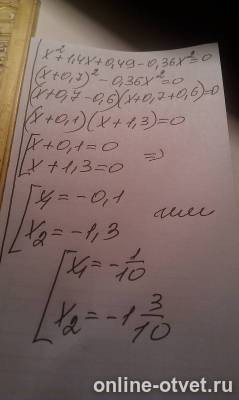 x²+1,4x+0,49-0,36x²=0
(x+0,7)²-0,36x²=0
(x+0,7-0,6)(x+0,7+0,6)=0
(x+0,1)(x+1,3)=0
[x+0,1=0
x+1,3=0 ⇒
[x₁=-0,1
x₂=-1,3 или
[x₁=-1/10
x₂=-1 3/10
online-otvet.ru